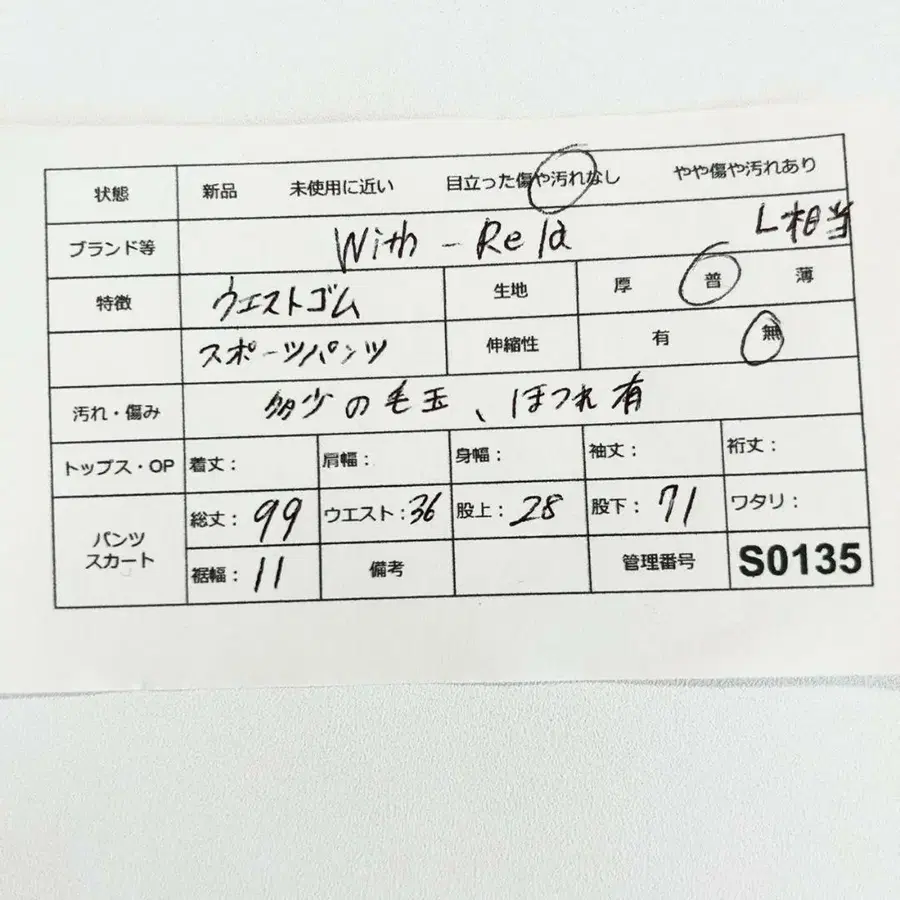 状態 新品 未使用に近い 目立った傷や汚れなし やや傷や汚れあり
ブランド等 With-Rela L相当
特徴 ウエストゴム 生地 厚 普 薄
スポーツパンツ 伸縮性 有 無
汚れ・傷み 多少の毛玉、ほつれ有
トップス・OP 着丈: 肩幅: 身幅: 袖丈: 裄丈:
パンツ スカート 総丈:99 ウエスト:36 股上:28 股下:71 ワタリ:
裾幅:11 備考 管理番号 S0135